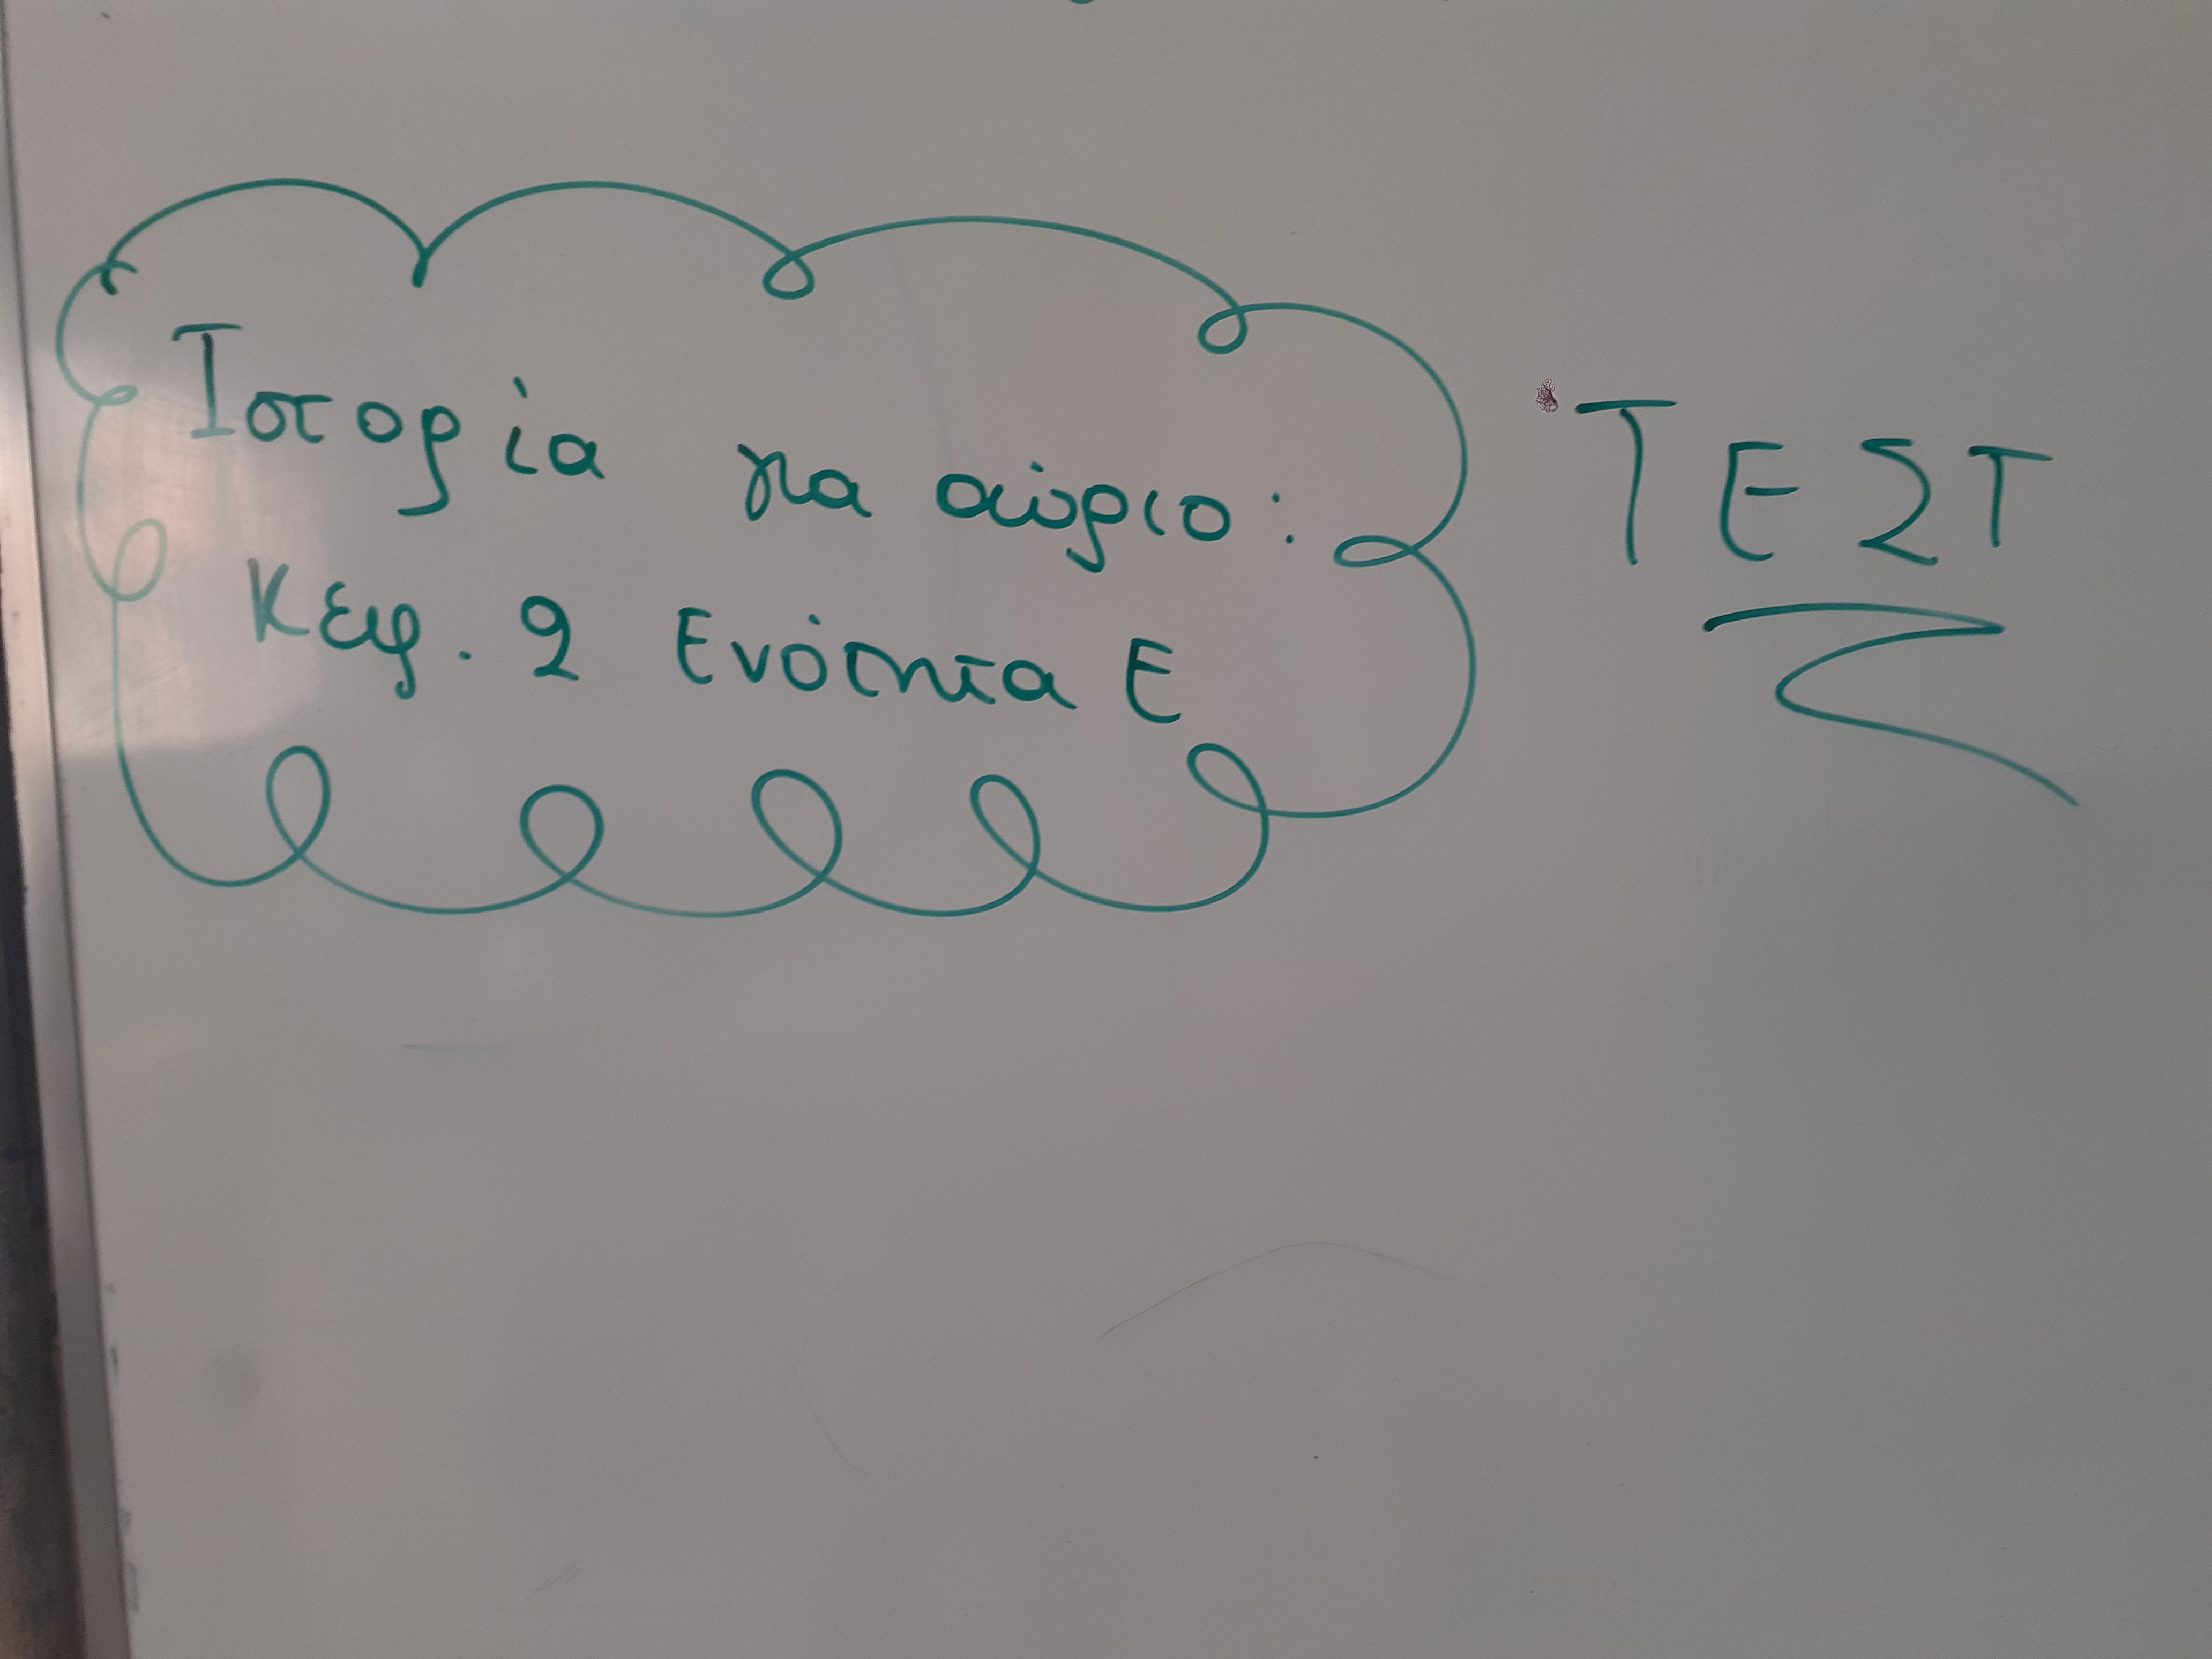 Ιστορία για αύριο:
Κεφ. 2 Ενότητα Ε
ΤΕΣΤ